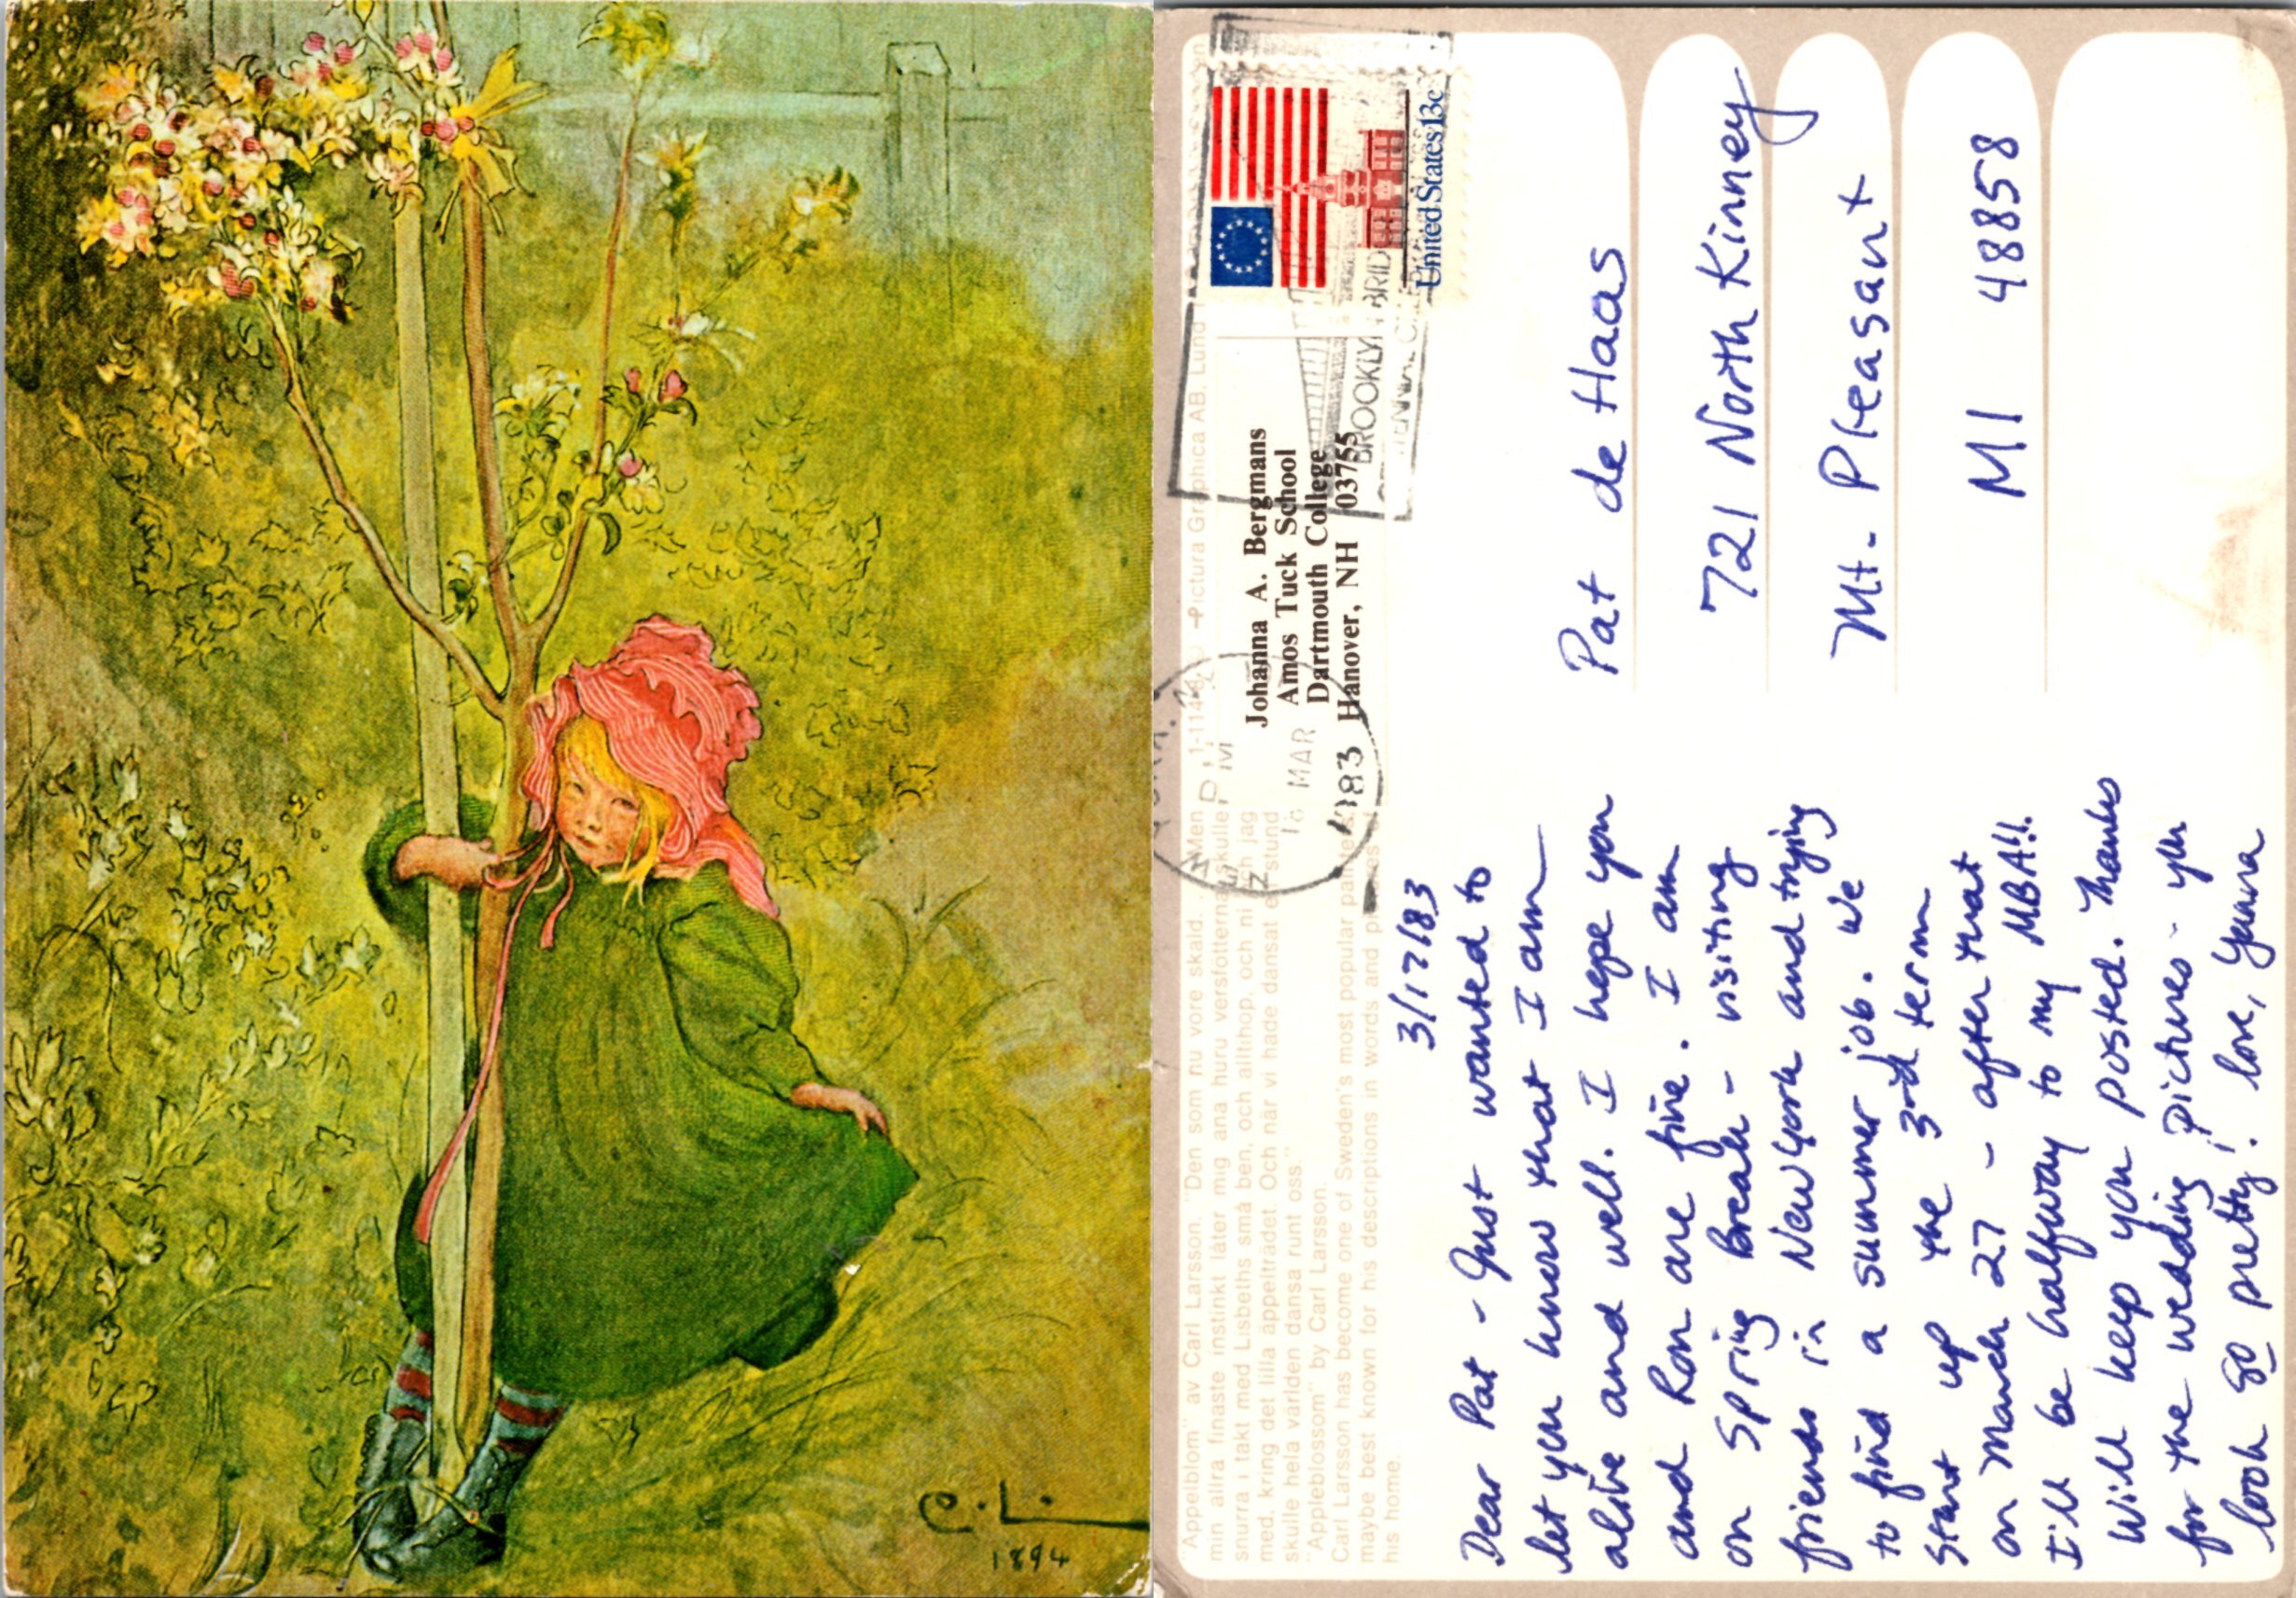 C.L.
1894
"Appelblom" av Carl Larsson. "Den som nu vore skald. Men
min allra finaste instinkt låter mig ana huru versfötterna skulle
snurra i takt med Lisbeths små ben, och alltihop, och ni och jag
med, kring det lilla äppelträdet. Och när vi hade dansat en stund
skulle hela världen dansa runt oss."
"Appleblossom" by Carl Larsson.
Carl Larsson has become one of Sweden's most popular
maybe best known for his descriptions in words and
his home.
Pictura Graphica AB, Lund
Johanna A. Bergmans
Amos Tuck School
Dartmouth College
Hanover, NH 03755
MAR
1983
BROOKLYN BRID
United States 13c
3/17/83
Dear Pat - Just wanted to
let you know that I am
alive and well. I hope you
and Ron are fine. I am
on Spring Break - visiting
friends in New York and trying
to find a summer job. We
start up the 3rd term
on March 27 - after that
I'll be halfway to my MBA!!
Will keep you posted. Thanks
for the wedding pictures - you
look so pretty! love,
Pat de Haas
721 North Kinney
Mt. Pleasant
MI 48858